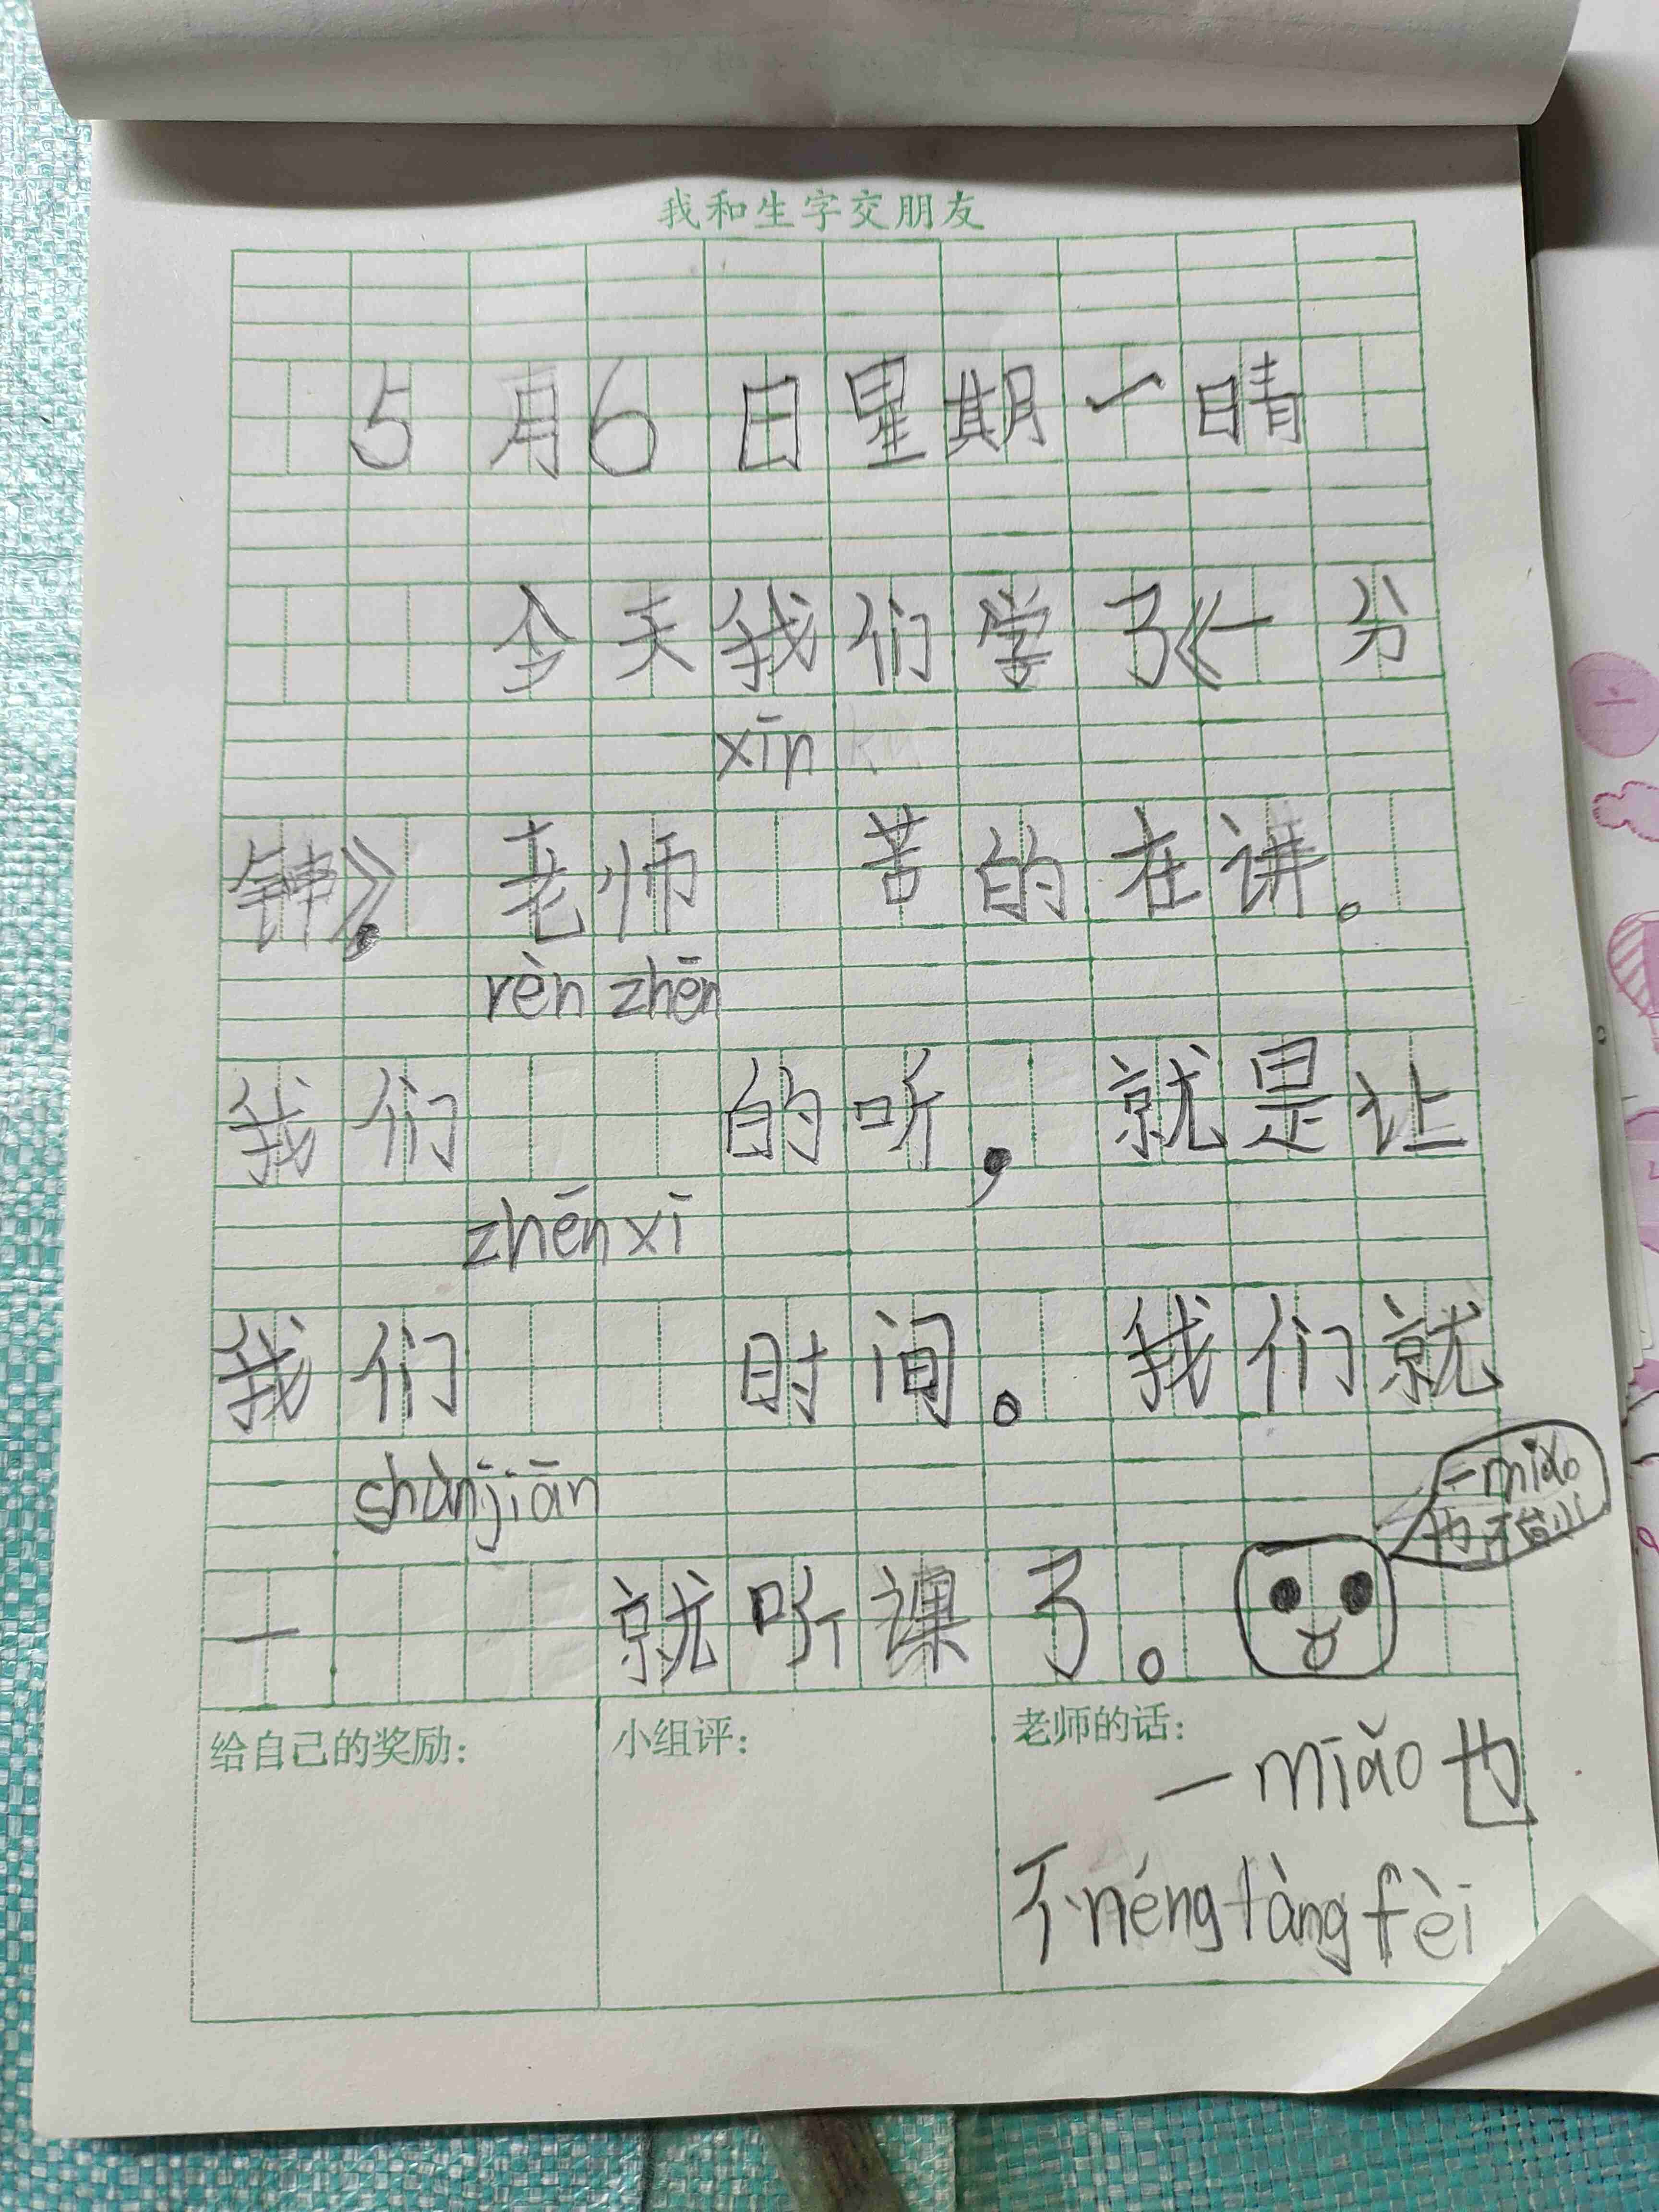 我和生字交朋友
5月6日星期一晴
今天我们学了《一分
xīn
钟》。老师 苦的在讲。
rèn zhēn
我们 的听，就是让
zhēn xī
我们 时间。我们就
shùn jiān
一 就听课了。
一miǎo
也不
给自己的奖励：
小组评：
老师的话：
一miǎo也
不néng làng fèi